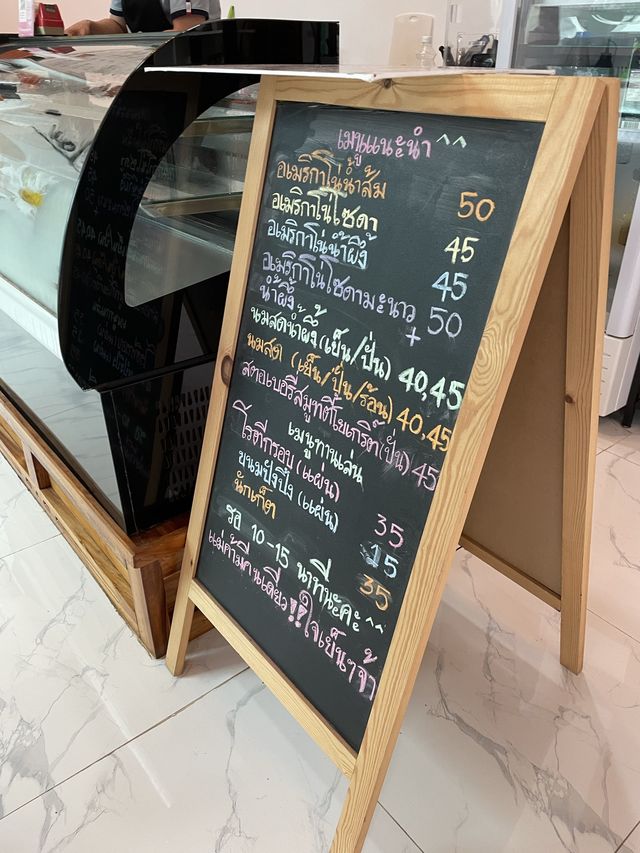 เมนูแนะนำ ^^
อเมริกาโน่น้ำส้ม 50
อเมริกาโน่โซดา 45
อเมริกาโน่น้ำผึ้ง 45
อเมริกาโน่โซดามะนาว+น้ำผึ้ง 50
นมสดน้ำผึ้ง (เย็น/ปั่น) 40,45
นมสด (เย็น/ปั่น/ร้อน) 40,45
สตอเบอรี่สมูทตี้โยเกิร์ต(ปั่น) 45
เมนูทานเล่น
โรตีกรอบ (แผ่น) 35
ขนมปังปิ้ง (แผ่น) 15
นักเก็ต 35
รอ 10-15 นาทีนะคะ ^^
แม่ค้ามีคนเดียว!! ใจเย็นๆจ้า